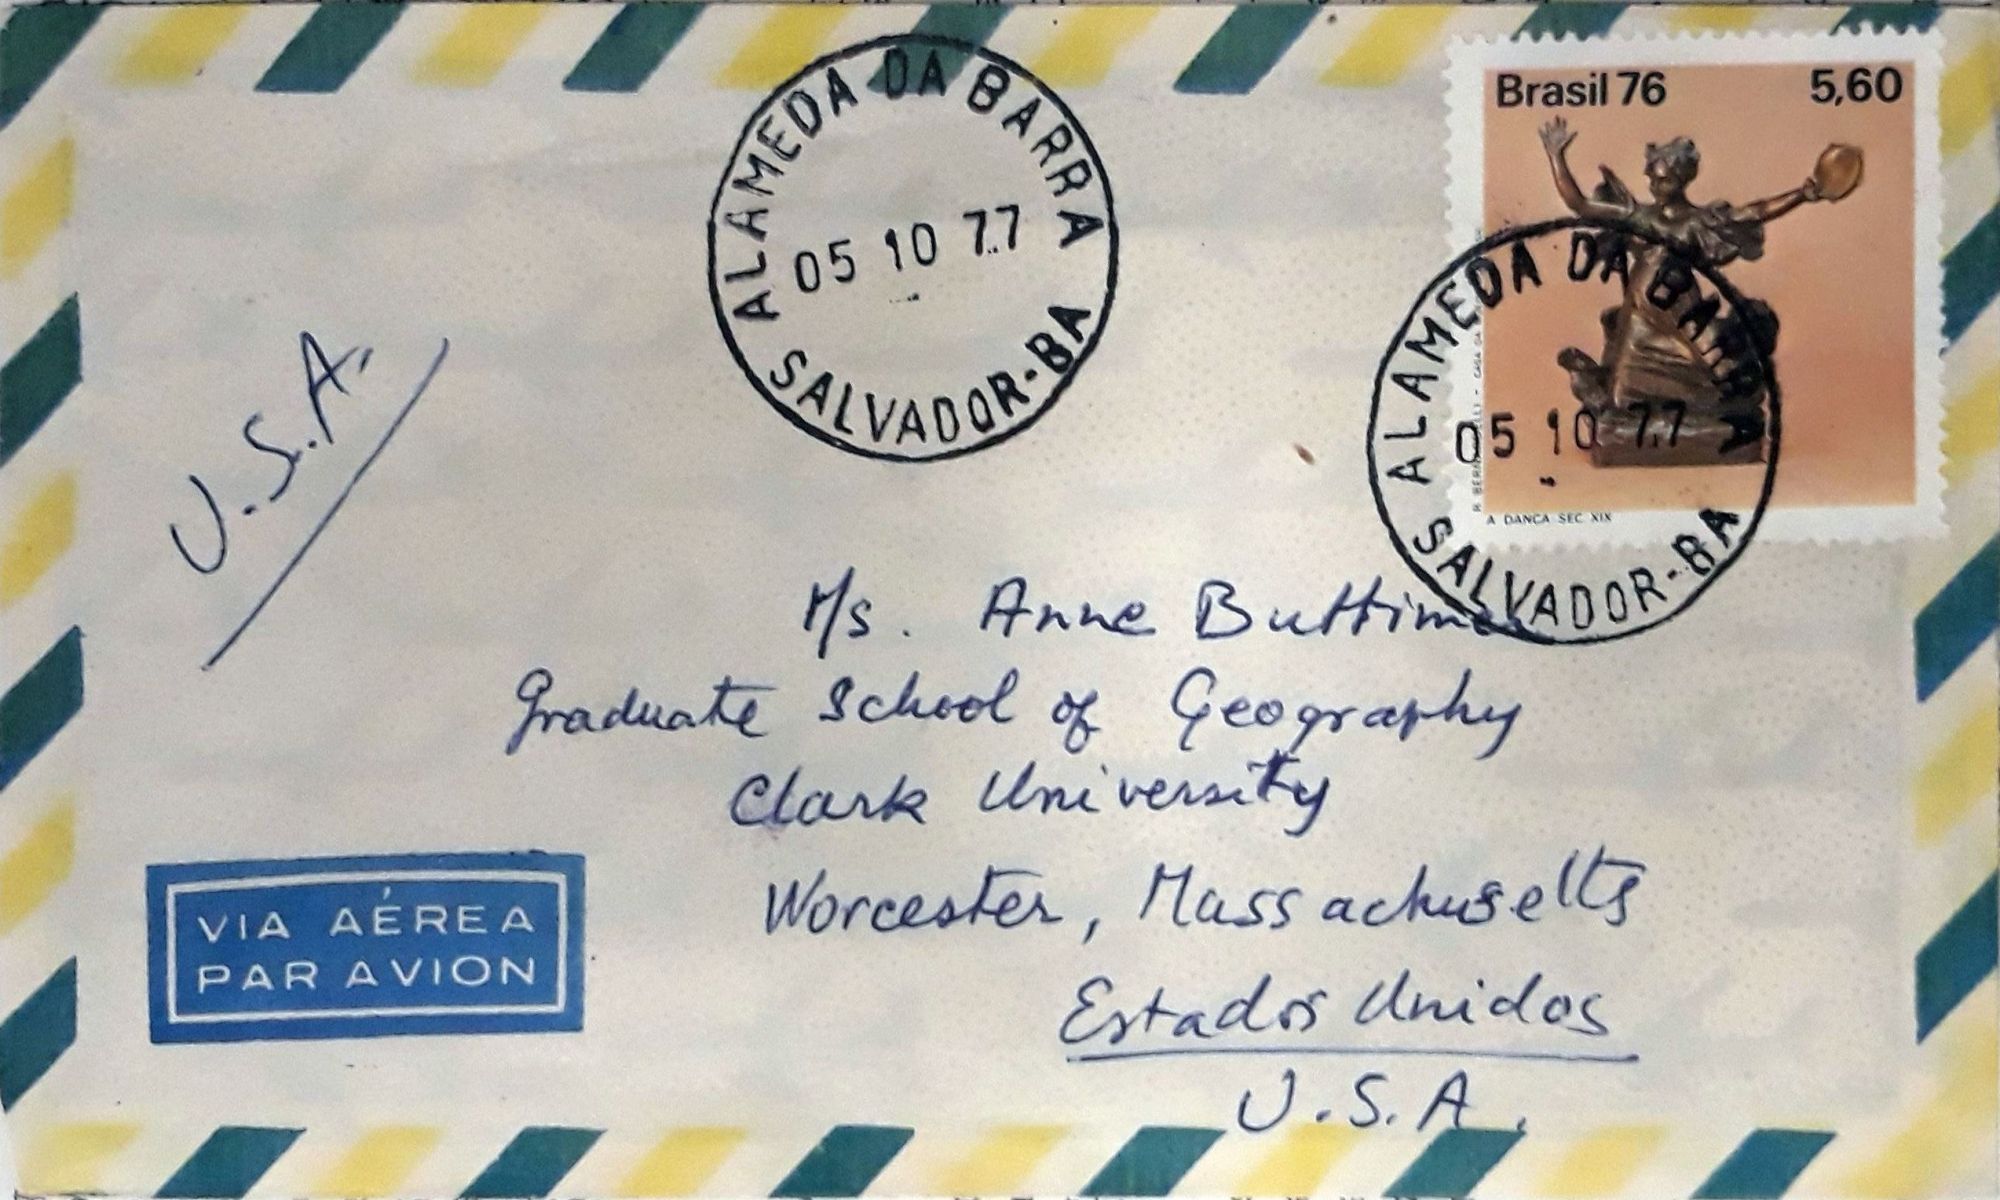 ALAMEDA DA BARRA
05 10 77
SALVADOR-BA
Brasil 76 5,60
ALAMEDA DA BARRA
05 10 77
SALVADOR-BA
A DANÇA SEC XIX
U.S.A.
Ms. Anne Buttimer
Graduate School of Geography
Clark University
Worcester, Massachusetts
Estados Unidos
U.S.A.
VIA AÉREA
PAR AVION